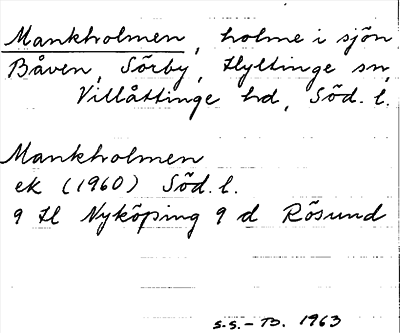 Mankholmen, holme i sjön
Båven, Sörby, Hyltinge sn,
Villåttinge hd, Söd. l.
Mankholmen
ek (1960) Söd. l.
9 H Nyköping 9 d Rösund
S.S.-B. 1963